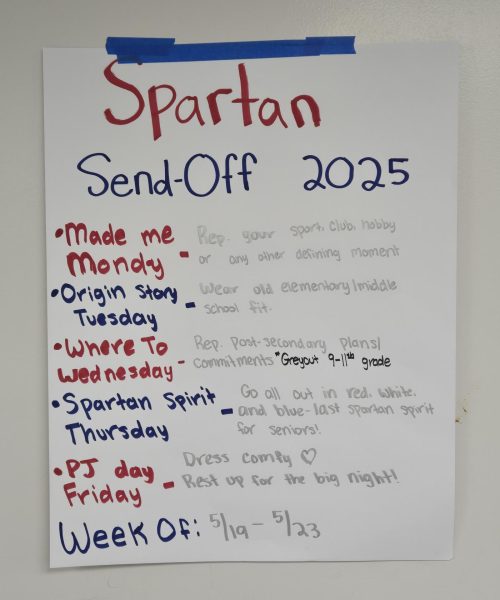 Spartan
Send-Off 2025
•Made me Mondy - Rep. your sport, club, hobby
or any other defining moment
•Origin Story Tuesday - Wear old elementary/middle
school fit.
•Where To Wednesday - Rep. post-secondary plans/
commitments *Greyout 9-11th grade
•Spartan Spirit Thursday - Go all out in red, white,
and blue-last spartan spirit
for seniors!
•PJ day Friday - Dress comfy ♡
Rest up for the big night!
Week Of: 5/19 - 5/23